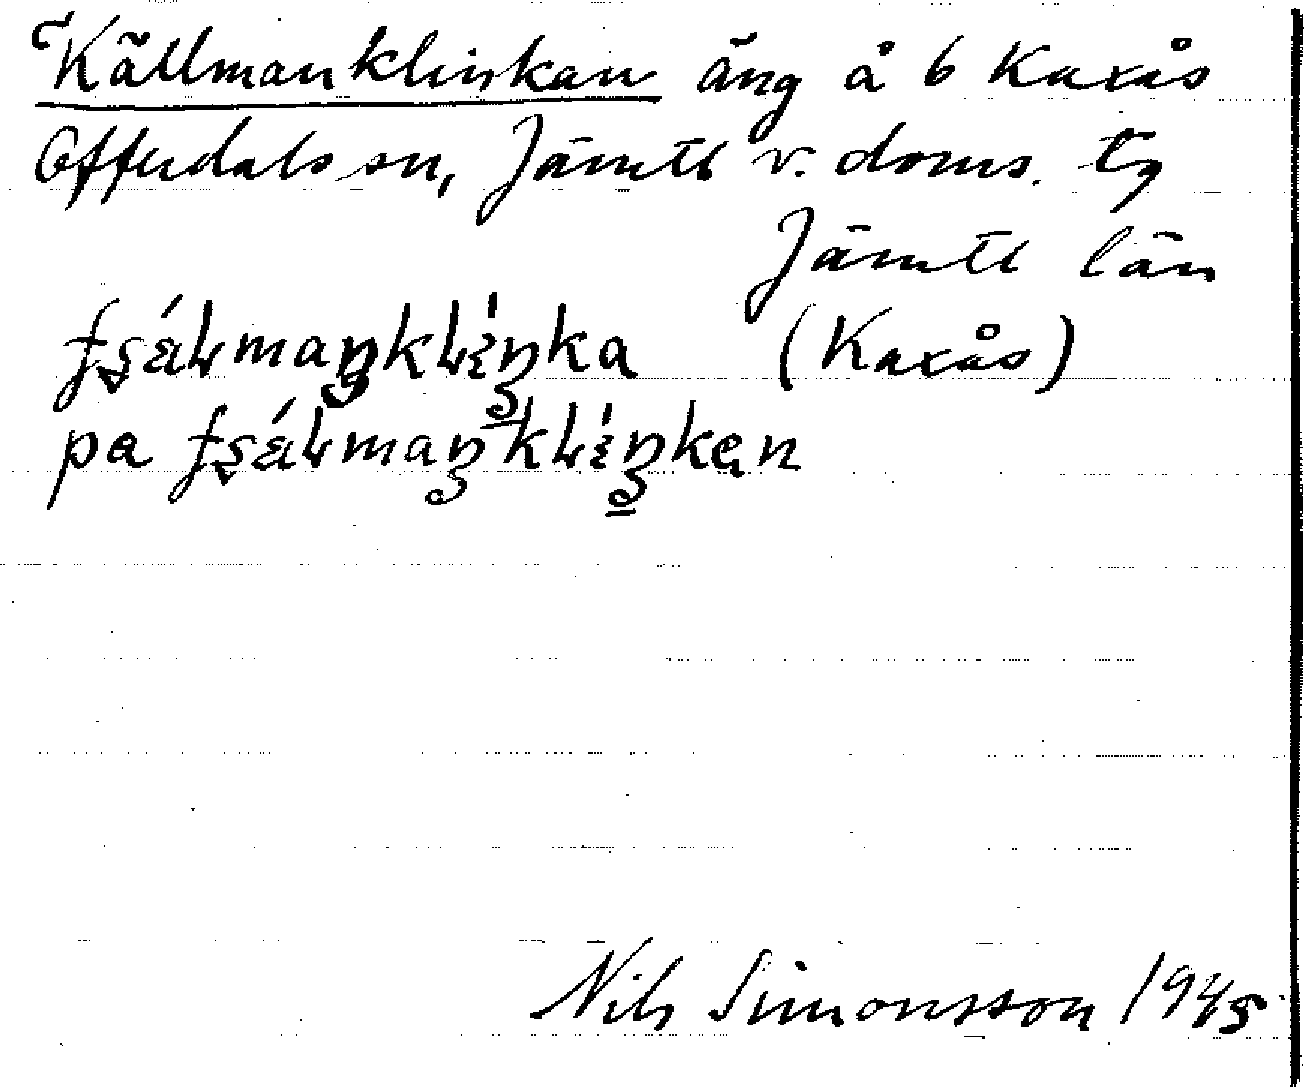 Källmanklinkan äng å 6 Kaxås
Offerdals sn, Jämtl v. doms. tg
Jämtl län
(Kaxås)
pa
Nils Simonsson 1945